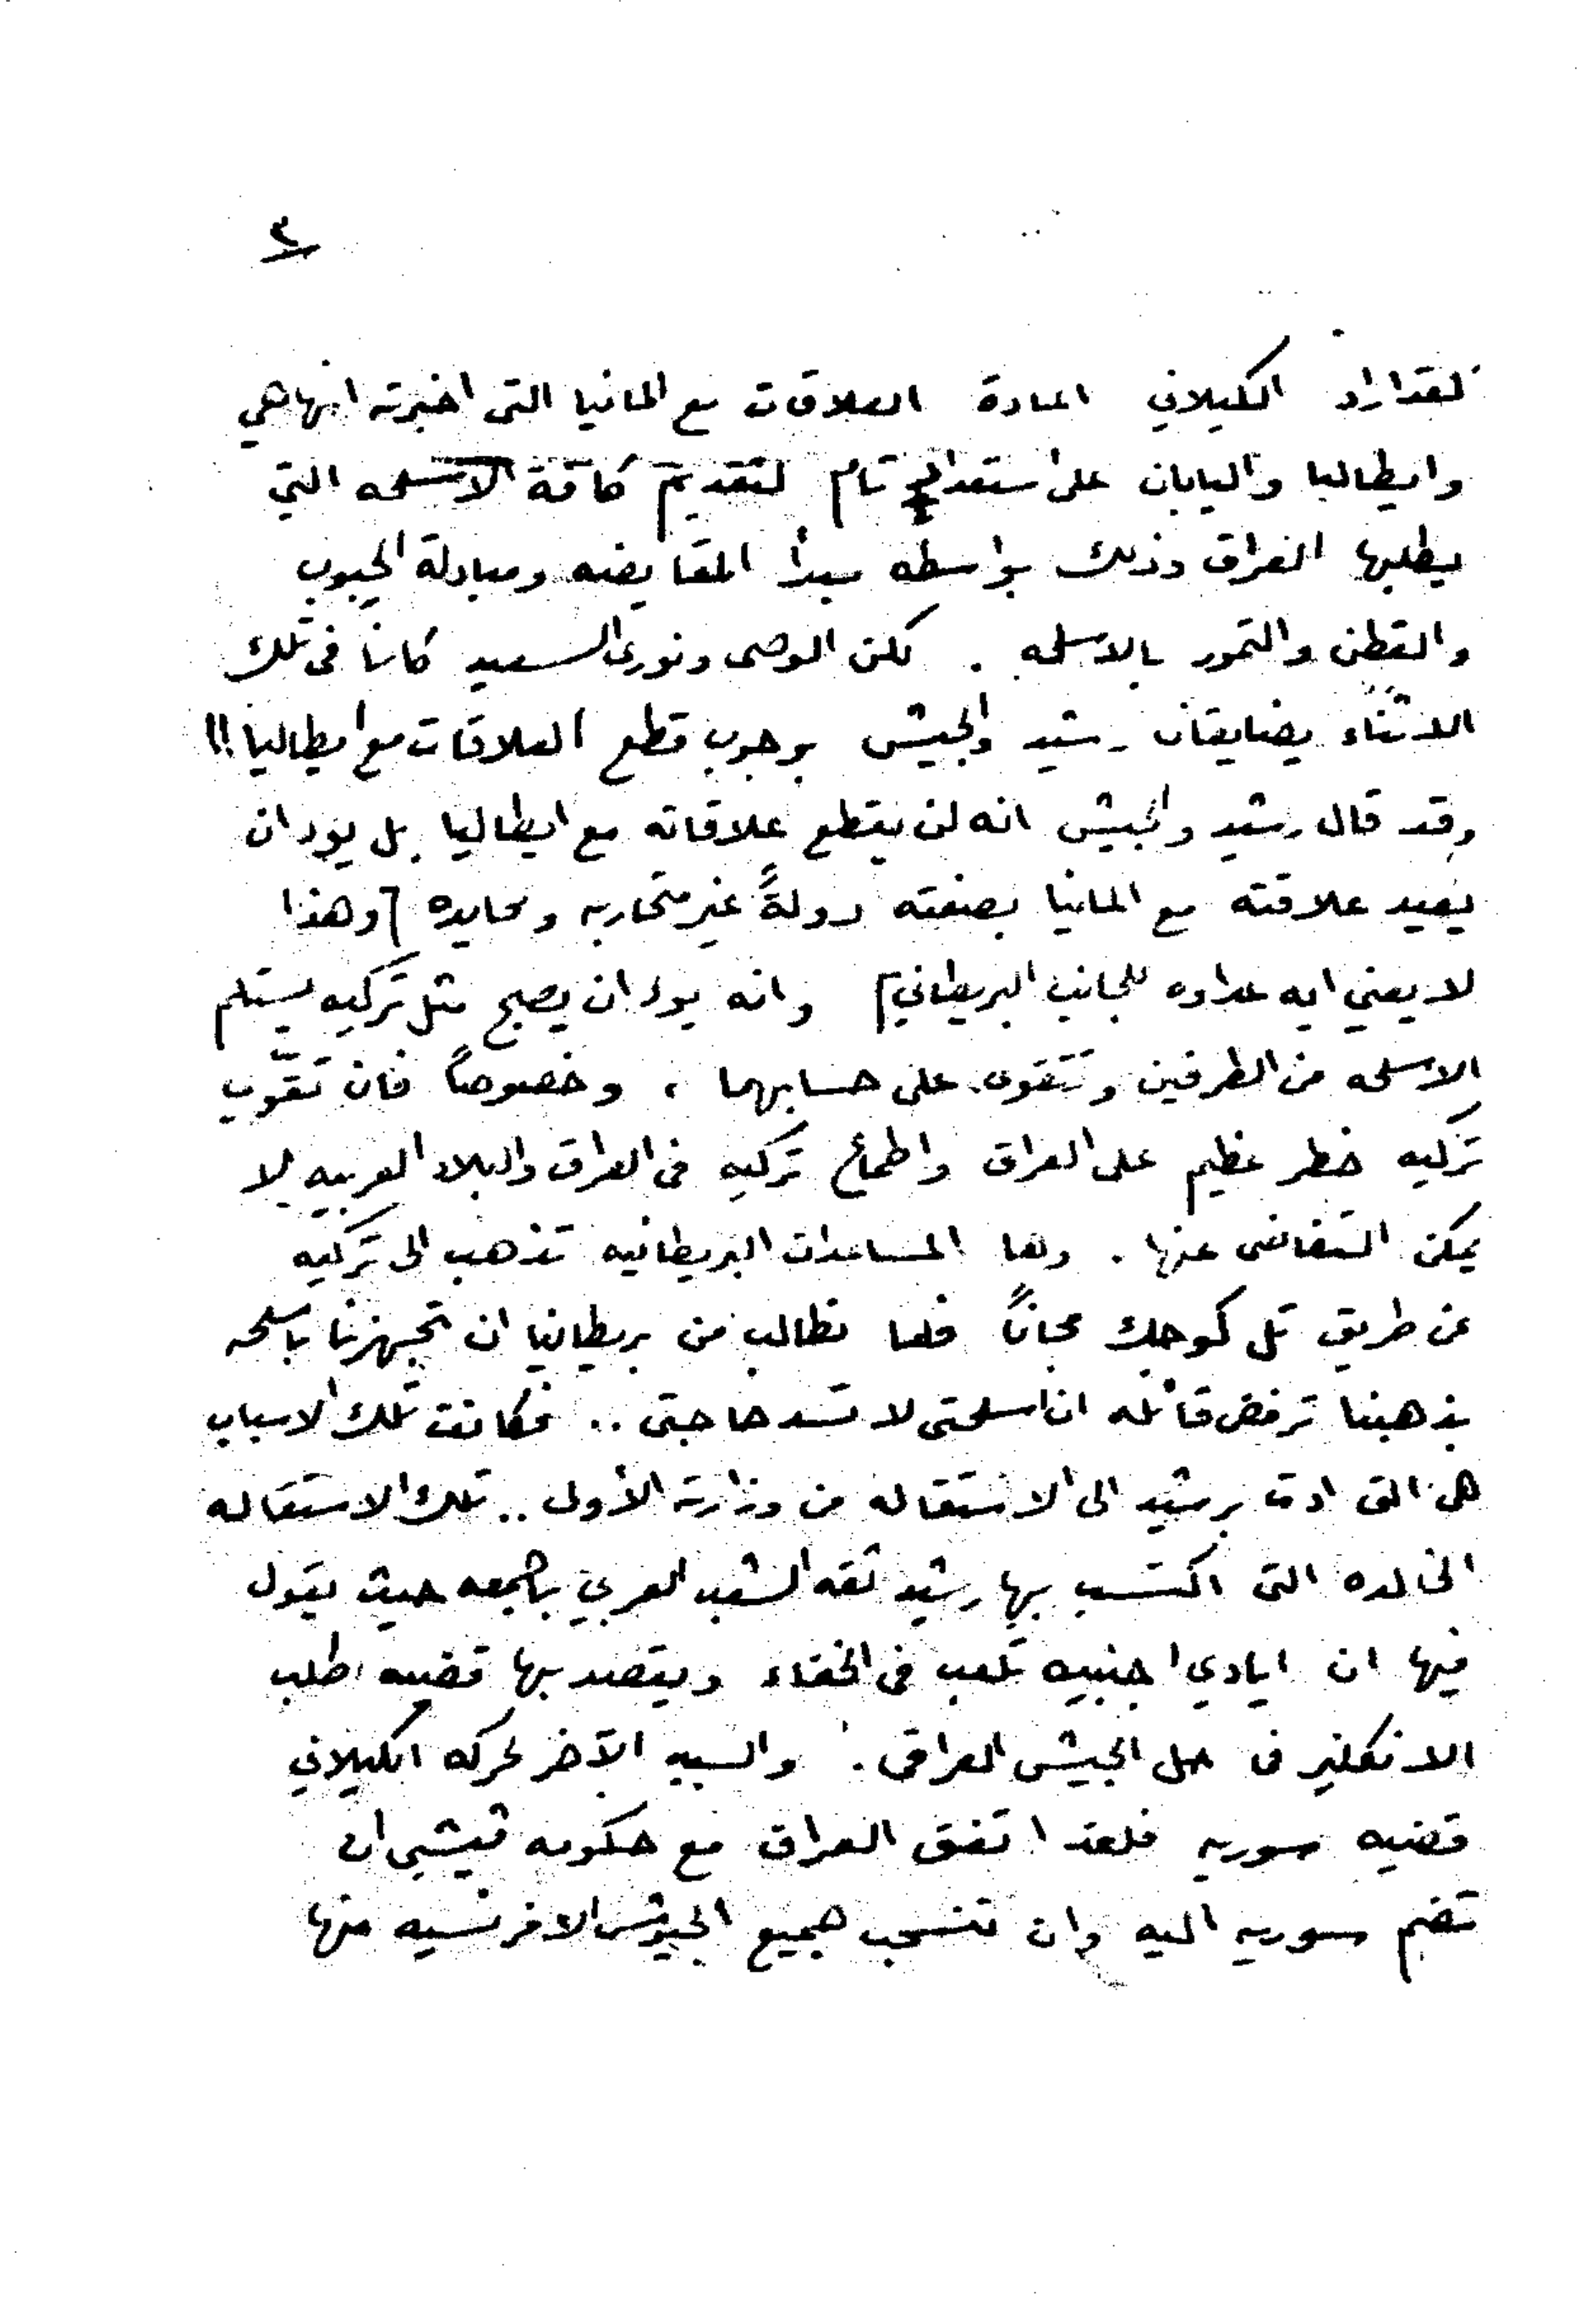 ٣
لقد اراد الكيلاني اعادة العلاقات مع المانيا التى اخبرته انها هي
وايطاليا واليابان على استعداد تام لتقديم كافة الاسلحه التي
يطلبها العراق وذلك بواسطه مبدأ المقايضه ومبادلة الحبوب
والقطن والتمور بالاسلحه . لكن الوصى ونورى السعيد كانا فى تلك
الاثناء يضايقان رشيد والجيش بوجوب قطع العلاقات مع ايطاليا !!
وقد قال رشيد والجيش انه لن يقطع علاقاته مع ايطاليا بل يود ان
يعيد علاقته مع المانيا بصفته دولةً غير متحاربه ومحايده [وهذا
لا يعني ايه عداوه للجانب البريطاني] وانه يود ان يصبح مثل تركيه يستلم
الاسلحه من الطرفين وتتقوى على حسابهما ، وخصوصاً فان تقرّب
تركيه خطر عظيم على العراق واطماع تركيه فى العراق والبلاد العربيه لا
يمكن التغاضى عنها . وهنا المساعدات البريطانيه تذهب الى تركيه
عن طريق تل كوجك مجاناً فلما نطالب من بريطانيا ان تجهزنا باسلحه
بذهبنا ترفض قائله ان اسلحتى لا تسد حاجتى .. فكانت تلك الاسباب
هى التى ادت برشيد الى الاستقاله من وزارته الأولى .. تلك الاستقاله
الخالده التى اكتسب بها رشيد ثقه الشعب العربي باجمعه حيث يقول
فيها ان ايادي اجنبيه تلعب فى الخفاء ويقصد بها قضيه طلب
الانكليز فى حل الجيش العراقى . والسبب الآخر لحركه الكيلاني
قضيه سوريه فلقد اتفق العراق مع حكومه فيشي ان
تضم سوريه اليه وان تنسحب جميع الجيوش الافرنسيه منها